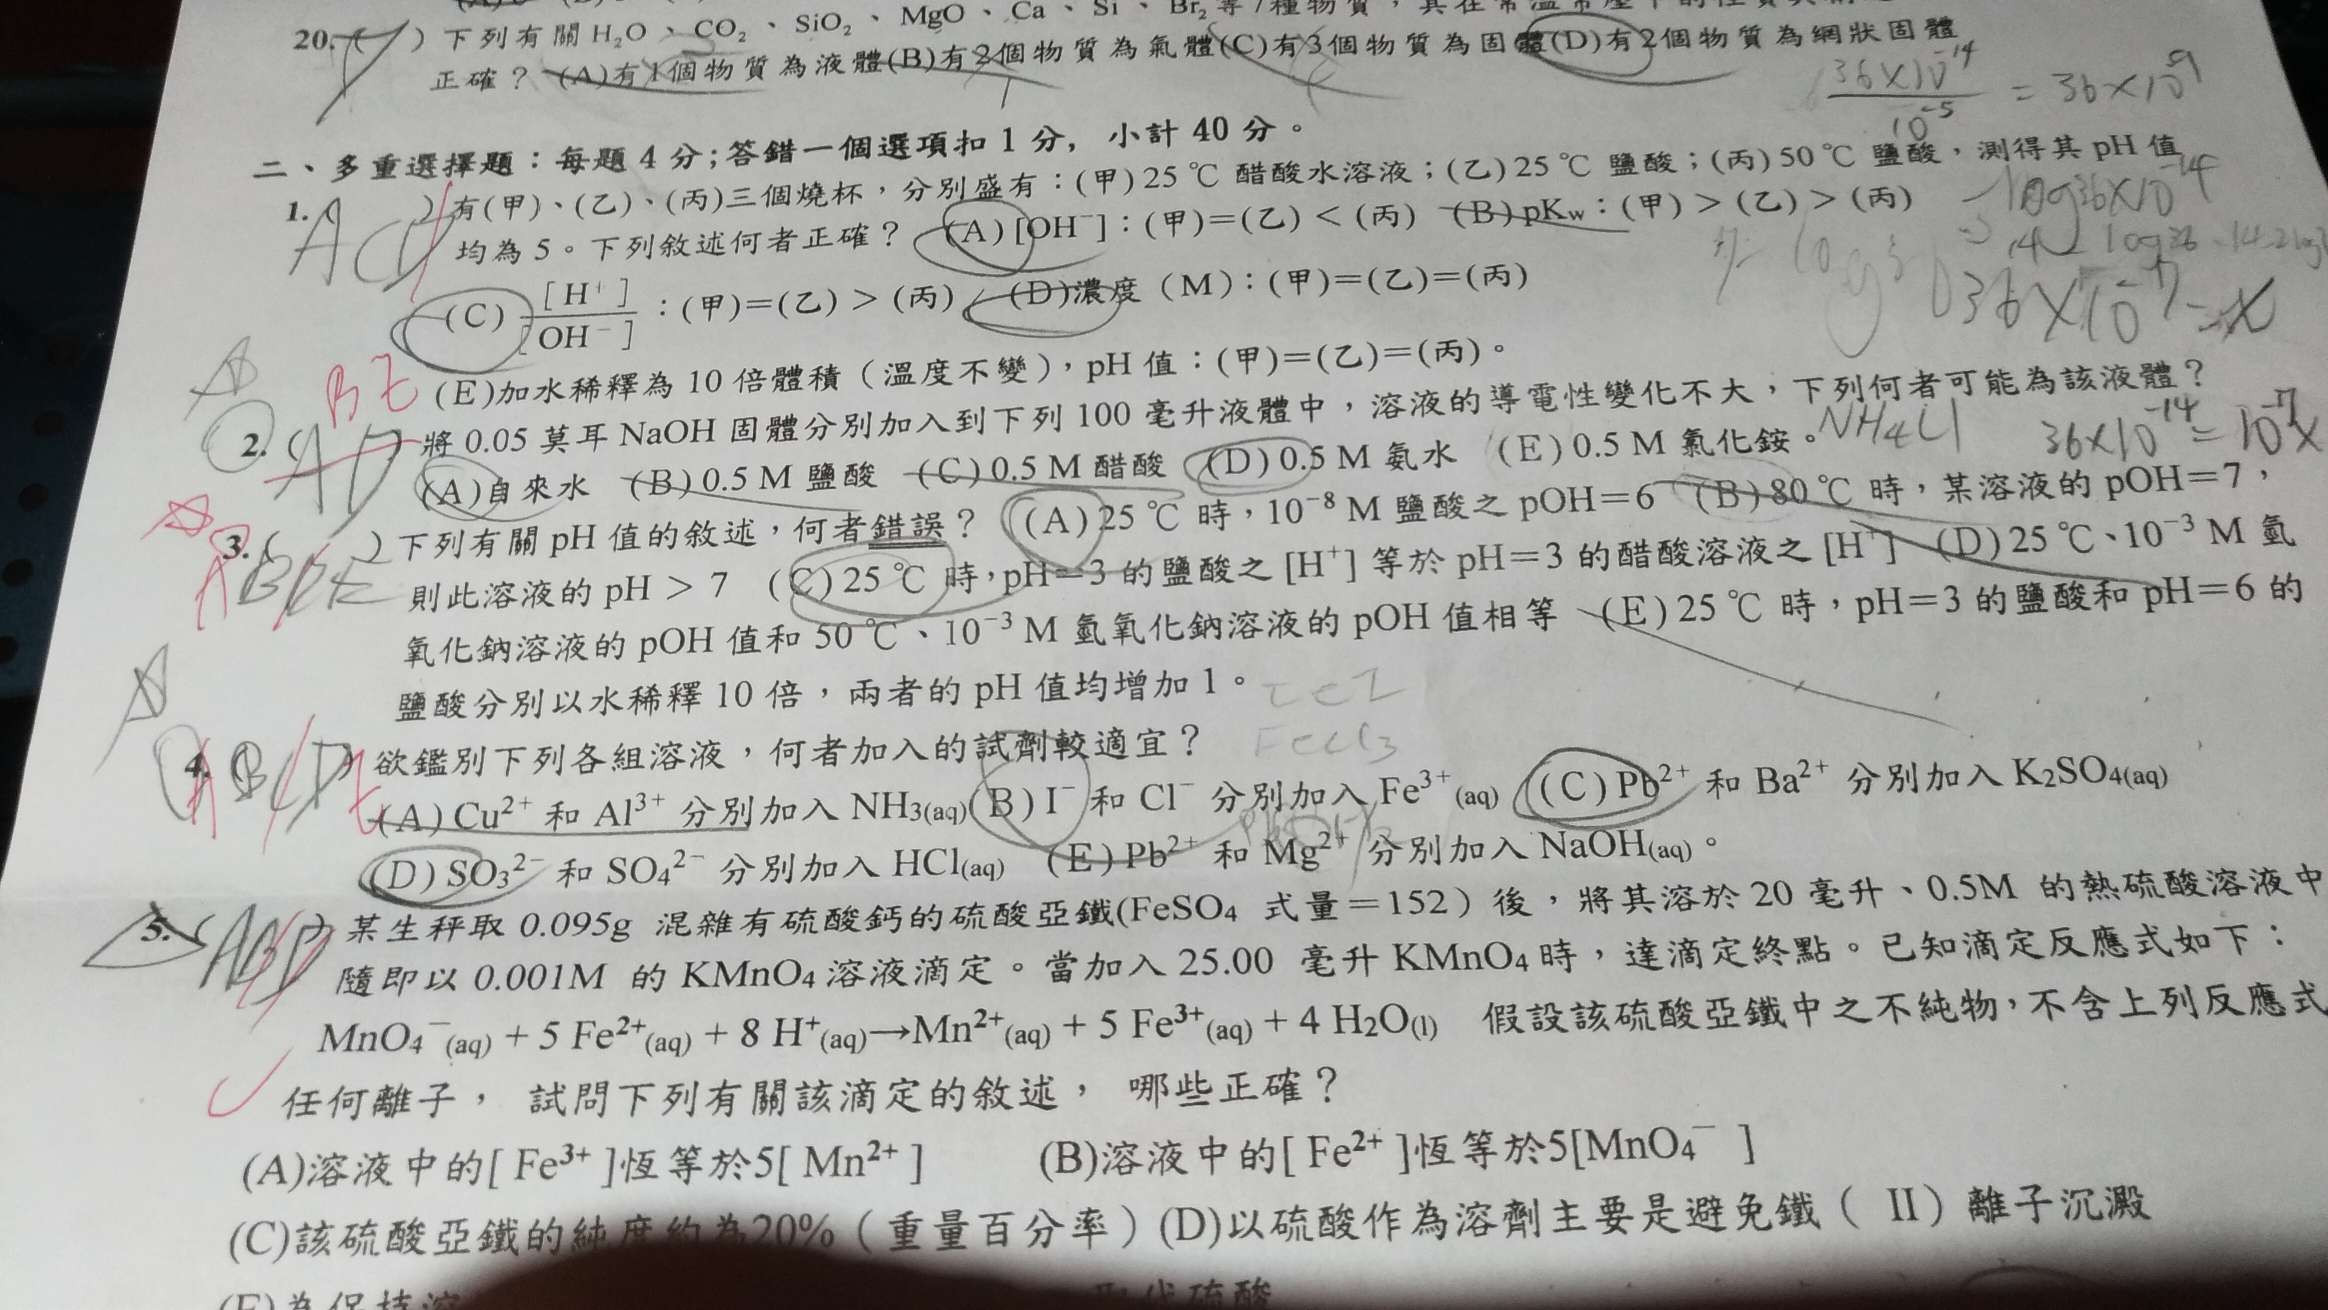 20. ( ) 下列有關H₂O、CO₂、SiO₂、MgO、Ca、Si、Br₂等7種物質，其在常溫常壓下的性質
正確？ (A)有1個物質為液體(B)有2個物質為氣體(C)有3個物質為固體(D)有2個物質為網狀固體
36×10⁻¹⁴ / 10⁻⁵ = 36×10⁻⁹
二、多重選擇題：每題4分;答錯一個選項扣1分，小計40分。
1. ( ACD ) 有(甲)、(乙)、(丙)三個燒杯，分別盛有：(甲) 25 ℃ 醋酸水溶液；(乙) 25 ℃ 鹽酸；(丙) 50 ℃ 鹽酸，測得其 pH 值
均為 5。下列敘述何者正確？ (A) [OH⁻]：(甲)＝(乙)＜(丙) (B) pKw：(甲)＞(乙)＞(丙)
-log36×10⁻¹⁴
(C) [H⁺] / [OH⁻] ：(甲)＝(乙)＞(丙) (D)濃度（M）：(甲)＝(乙)＝(丙)
36×10⁻⁷=x
(E)加水稀釋為 10 倍體積（溫度不變），pH 值：(甲)＝(乙)＝(丙)。
BE
2. ( AD ) 將 0.05 莫耳 NaOH 固體分別加入到下列 100 毫升液體中，溶液的導電性變化不大，下列何者可能為該液體？
(A)自來水 (B) 0.5 M 鹽酸 (C) 0.5 M 醋酸 (D) 0.5 M 氨水 (E) 0.5 M 氯化銨。
NH₄Cl 36×10⁻¹⁴=10⁻⁷x
3. ( ABDE ) 下列有關 pH 值的敘述，何者錯誤？ (A) 25 ℃ 時，10⁻⁸ M 鹽酸之 pOH＝6 (B) 80 ℃ 時，某溶液的 pOH＝7，
則此溶液的 pH > 7 (C) 25 ℃ 時，pH＝3 的鹽酸之 [H⁺] 等於 pH＝3 的醋酸溶液之 [H⁺] (D) 25 ℃、10⁻³ M 氫
氧化鈉溶液的 pOH 值和 50 ℃、10⁻³ M 氫氧化鈉溶液的 pOH 值相等 (E) 25 ℃ 時，pH＝3 的鹽酸和 pH＝6 的
鹽酸分別以水稀釋 10 倍，兩者的 pH 值均增加 1。
FeCl₃
4. ( BCD ) 欲鑑別下列各組溶液，何者加入的試劑較適宜？
(A) Cu²⁺ 和 Al³⁺ 分別加入 NH₃(aq) (B) I⁻ 和 Cl⁻ 分別加入 Fe³⁺(aq) (C) Pb²⁺ 和 Ba²⁺ 分別加入 K₂SO₄(aq)
(D) SO₃²⁻ 和 SO₄²⁻ 分別加入 HCl(aq) (E) Pb²⁺ 和 Mg²⁺ 分別加入 NaOH(aq)。
5. ( ABD ) 某生秤取 0.095g 混雜有硫酸鈣的硫酸亞鐵(FeSO₄ 式量＝152）後，將其溶於 20 毫升、0.5M 的熱硫酸溶液中
隨即以 0.001M 的 KMnO₄ 溶液滴定。當加入 25.00 毫升 KMnO₄ 時，達滴定終點。已知滴定反應式如下：
MnO₄⁻(aq) + 5 Fe²⁺(aq) + 8 H⁺(aq)→Mn²⁺(aq) + 5 Fe³⁺(aq) + 4 H₂O(l) 假設該硫酸亞鐵中之不純物，不含上列反應式
任何離子， 試問下列有關該滴定的敘述， 哪些正確？
(A)溶液中的[ Fe³⁺ ]恆等於5[ Mn²⁺ ] (B)溶液中的[ Fe²⁺ ]恆等於5[MnO₄⁻ ]
(C)該硫酸亞鐵的純度約為20%（重量百分率）(D)以硫酸作為溶劑主要是避免鐵（ II）離子沉澱
(E)為保持溶 硫酸